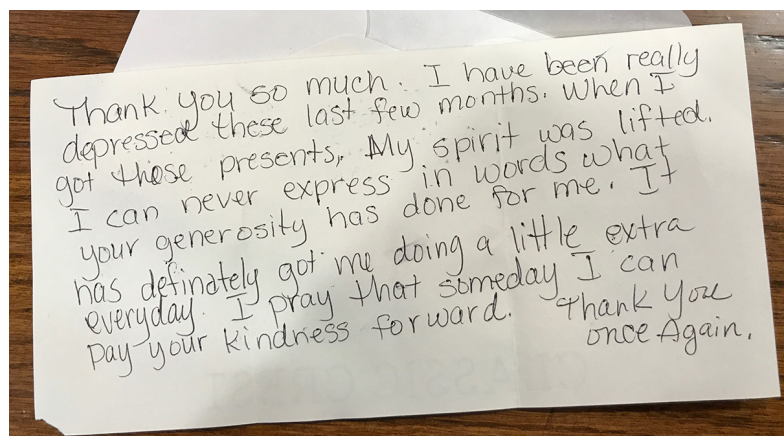 Thank you so much. I have been really
depressed these last few months. When I
got those presents, My spirit was lifted.
I can never express in words what
your generosity has done for me. It
has definately got me doing a little extra
everyday. I pray that someday I can
pay your kindness forward. Thank you
once Again.
CLASSIC CREST